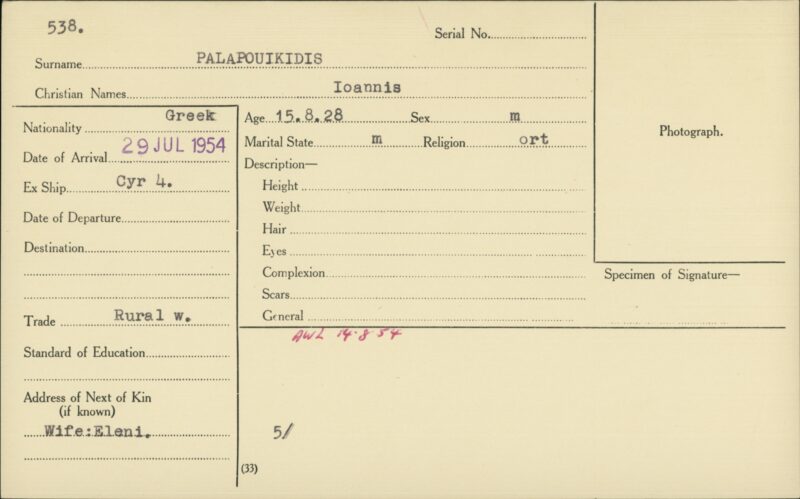 538.
Serial No.
Surname PALAPOUIKIDIS
Christian Names Ioannis
Nationality Greek
Date of Arrival 29 JUL 1954
Ex Ship Cyr 4.
Date of Departure
Destination
Trade Rural w.
Standard of Education
Address of Next of Kin
(if known)
Wife:Eleni.
Age 15.8.28 Sex m
Marital State m Religion ort
Description—
Height
Weight
Hair
Eyes
Complexion
Scars
General
AWL 14.8.54
5/
(33)
Photograph.
Specimen of Signature—